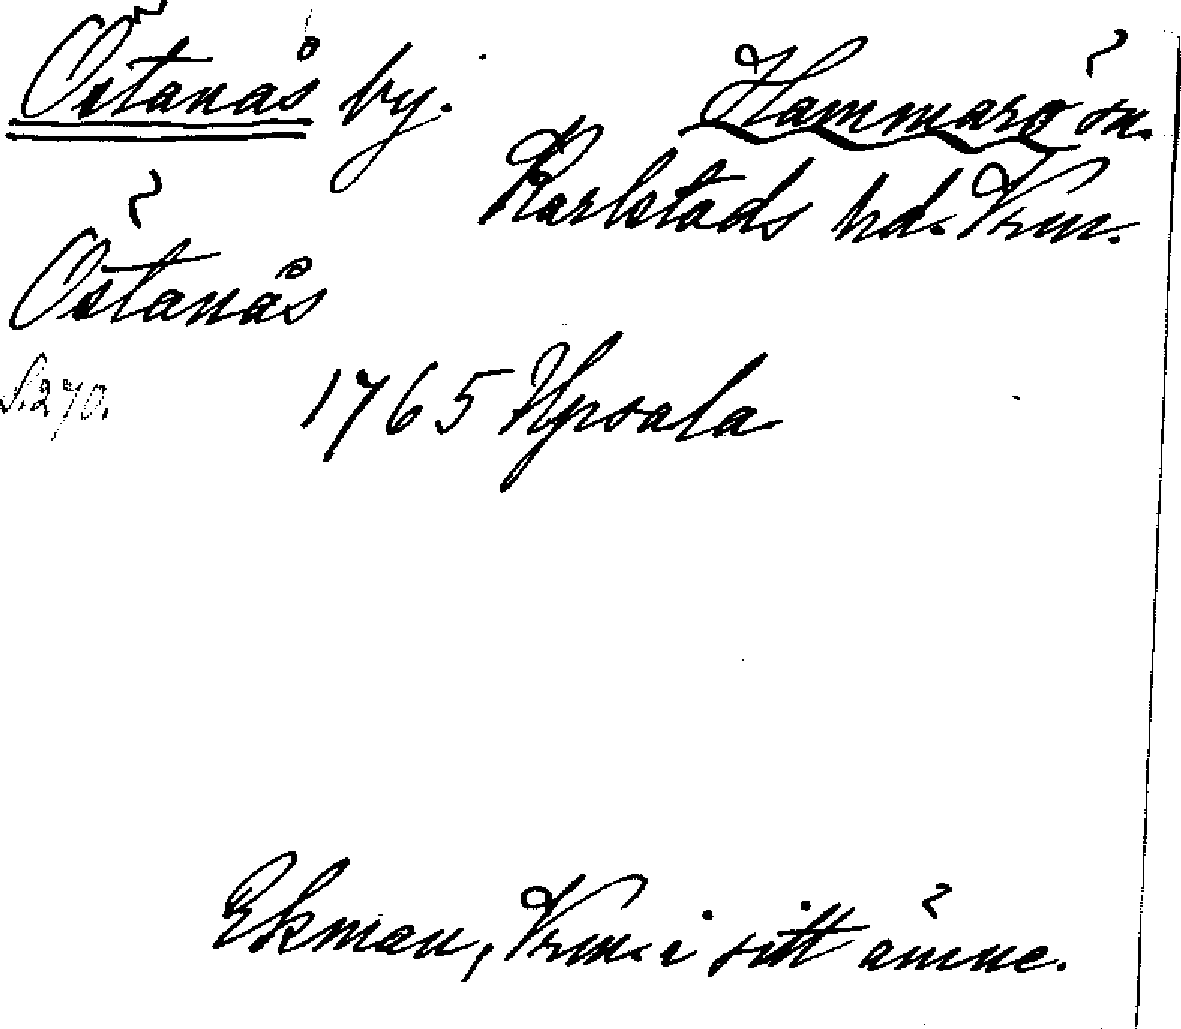 Östanås by. Hammarö sn.
Karlstads hd. Vrm.
Östanås
S. 270. 1765 Upsala
Ekman, Vrm. i sitt ämne.